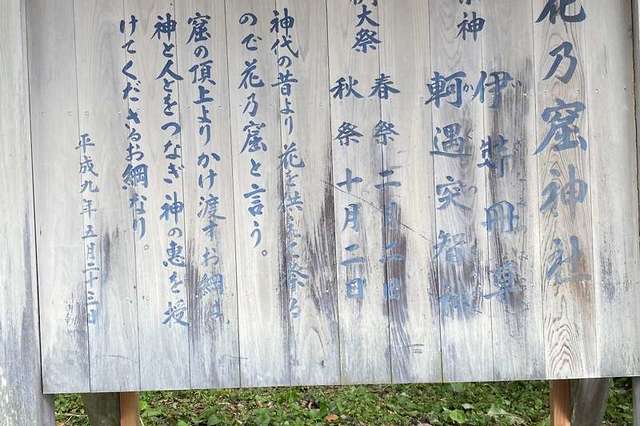 花乃窟神社
祭神
伊弉冊尊
軻遇突智
大祭
春祭 二月二日
秋祭 十月二日
神代の昔より花を供え祭る
ので花乃窟と言う。
窟の頂上よりかけ渡すお綱は
神と人とをつなぎ神の恵を授
けてくださるお綱なり。
平成九年五月二十三日